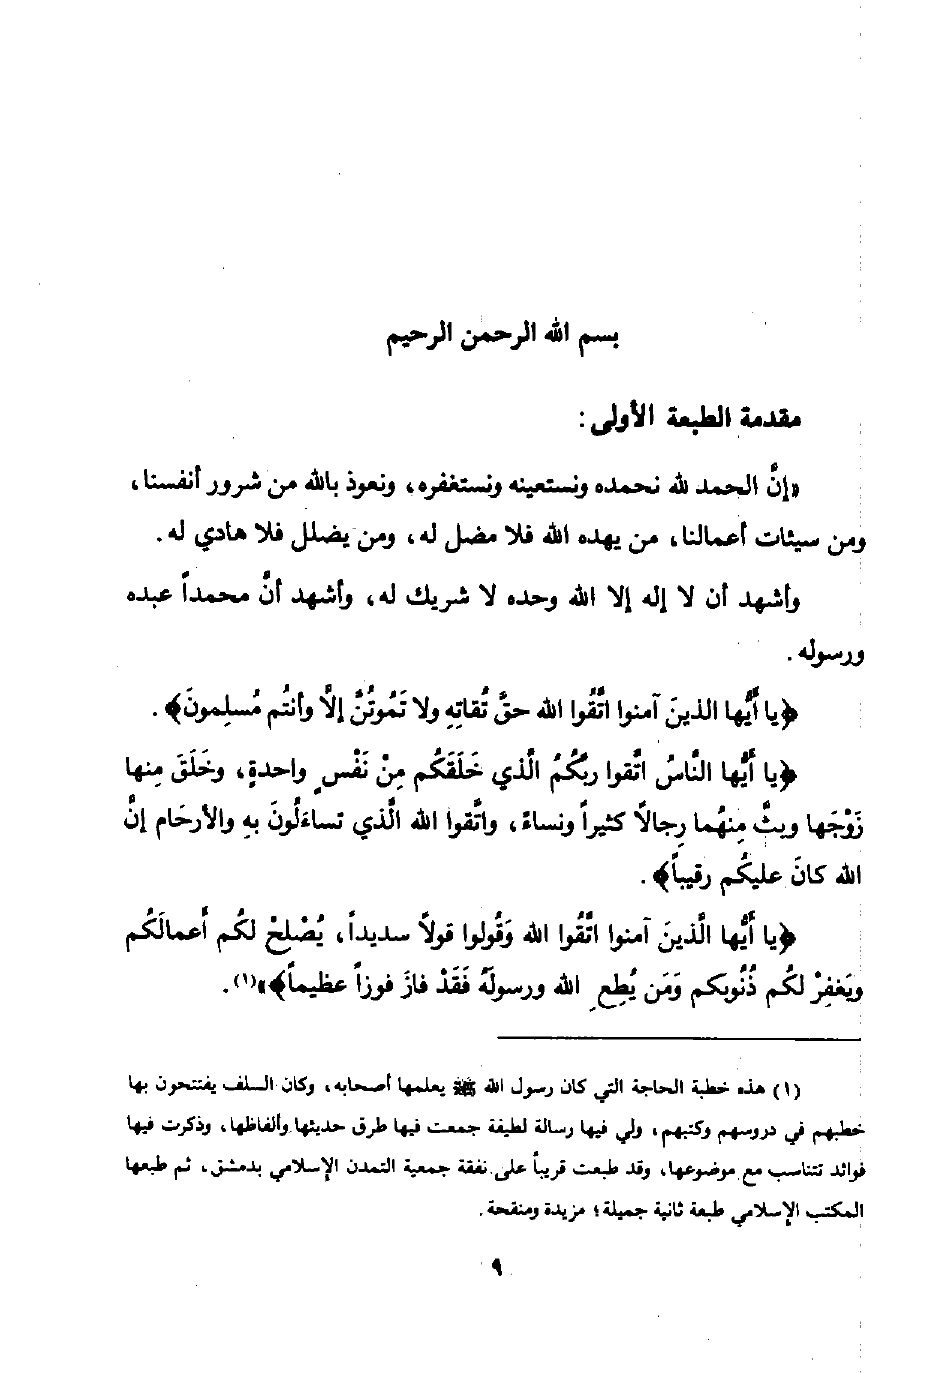 بسم الله الرحمن الرحيم
مقدمة الطبعة الأولى :
«إنَّ الحمد لله نحمده ونستعينه ونستغفره، ونعوذ بالله من شرور أنفسنا،
ومن سيئات أعمالنا، من يهده الله فلا مضل له، ومن يضلل فلا هادي له.
وأشهد أن لا إله إلا الله وحده لا شريك له، وأشهد أنَّ محمداً عبده
ورسوله.
﴿يا أيُّها الذينَ آمنوا اتَّقُوا الله حقَّ تُقاتِهِ ولا تَمُوتُنَّ إلَّا وأنتُم مُسلِمونَ﴾.
﴿يا أيُّها النَّاسُ اتَّقوا ربَّكُمُ الَّذي خَلَقَكُم مِنْ نَفْسٍ واحدةٍ، وخَلَقَ مِنها
زَوْجَها وبثَّ مِنهُما رِجالاً كثيراً ونساءً، واتَّقوا الله الَّذي تساءَلُونَ بهِ والأرحَام إنَّ
الله كانَ عليكُم رقيباً﴾.
﴿يا أيُّها الَّذينَ آمنوا اتَّقُوا الله وَقُولوا قولاً سديداً، يُصْلِحْ لكُم أعمالَكُم
ويَغفِرْ لكُم ذُنُوبكم وَمَن يُطِعِ الله ورسولَهُ فَقَدْ فازَ فوزاً عظيماً﴾»(١).
(١) هذه خطبة الحاجة التي كان رسول الله ﷺ يعلمها أصحابه، وكان السلف يفتتحون بها
خطبهم في دروسهم وكتبهم، ولي فيها رسالة لطيفة جمعت فيها طرق حديثها وألفاظها، وذكرت فيها
فوائد تتناسب مع موضوعها، وقد طبعت قريباً على نفقة جمعية التمدن الإسلامي بدمشق، ثم طبعها
المكتب الإسلامي طبعة ثانية جميلة؛ مزيدة ومنقحة.
٩